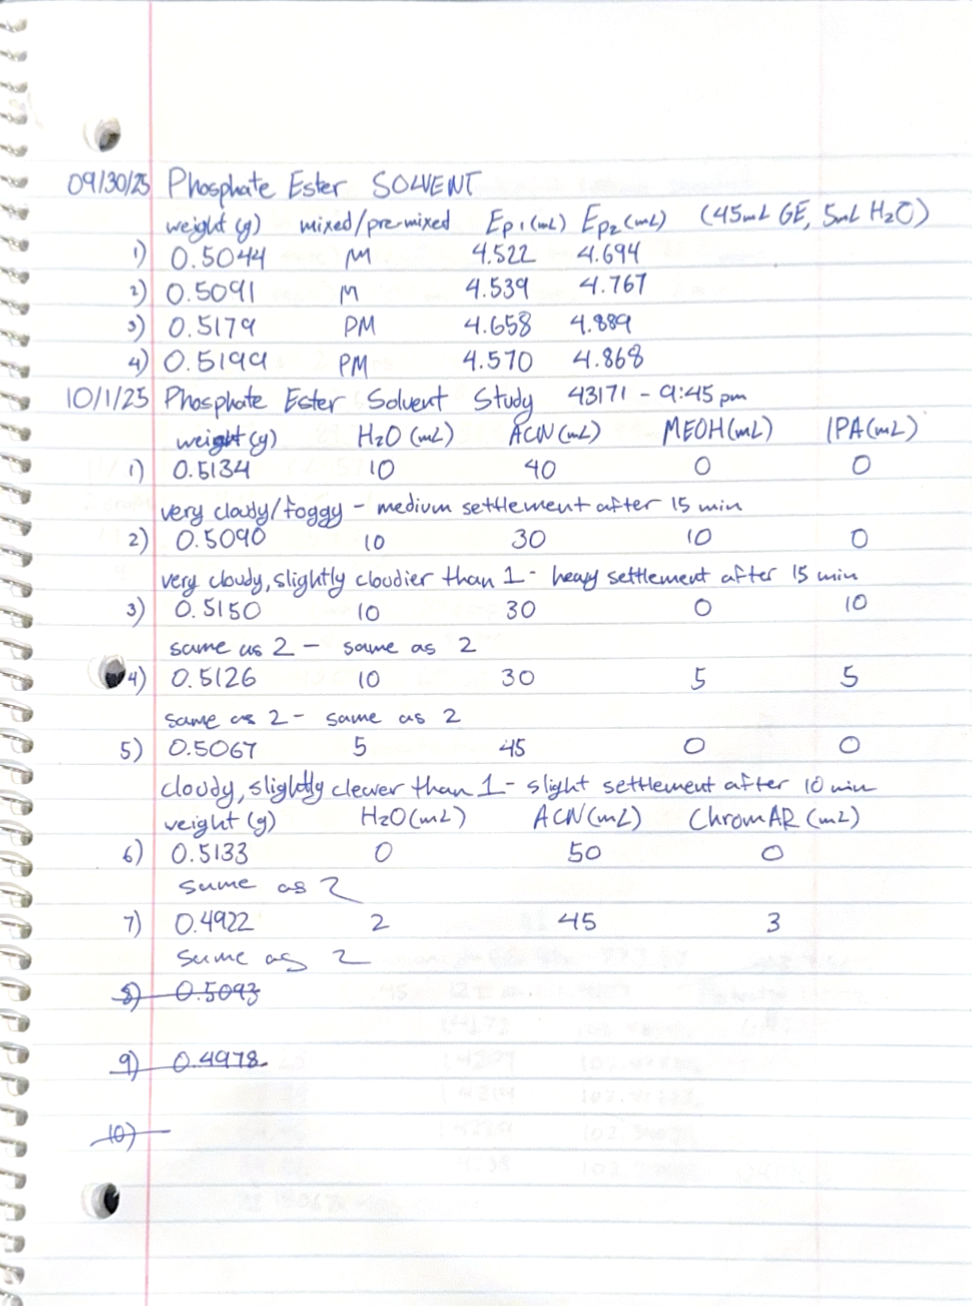 09/30/25 Phosphate Ester SOLVENT
weight (g) mixed/pre-mixed Ep1 (mL) Ep2 (mL) (45mL GE, 5mL H2O)
1) 0.5044 M 4.522 4.694
2) 0.5091 M 4.539 4.767
3) 0.5179 PM 4.658 4.889
4) 0.5199 PM 4.570 4.868
10/1/25 Phosphate Ester Solvent Study 43171 - 9:45 pm
weight (g) H2O (mL) ACN (mL) MEOH (mL) IPA (mL)
1) 0.5134 10 40 0 0
very cloudy/foggy - medium settlement after 15 min
2) 0.5090 10 30 10 0
very cloudy, slightly cloudier than 1 - heavy settlement after 15 min
3) 0.5150 10 30 0 10
same as 2 - same as 2
4) 0.5126 10 30 5 5
same as 2 - same as 2
5) 0.5067 5 45 0 0
cloudy, slightly clearer than 1 - slight settlement after 10 min
weight (g) H2O (mL) ACN (mL) ChromAR (mL)
6) 0.5133 0 50 0
same as 2
7) 0.4922 2 45 3
same as 2
8) 0.5093
9) 0.4978
10)